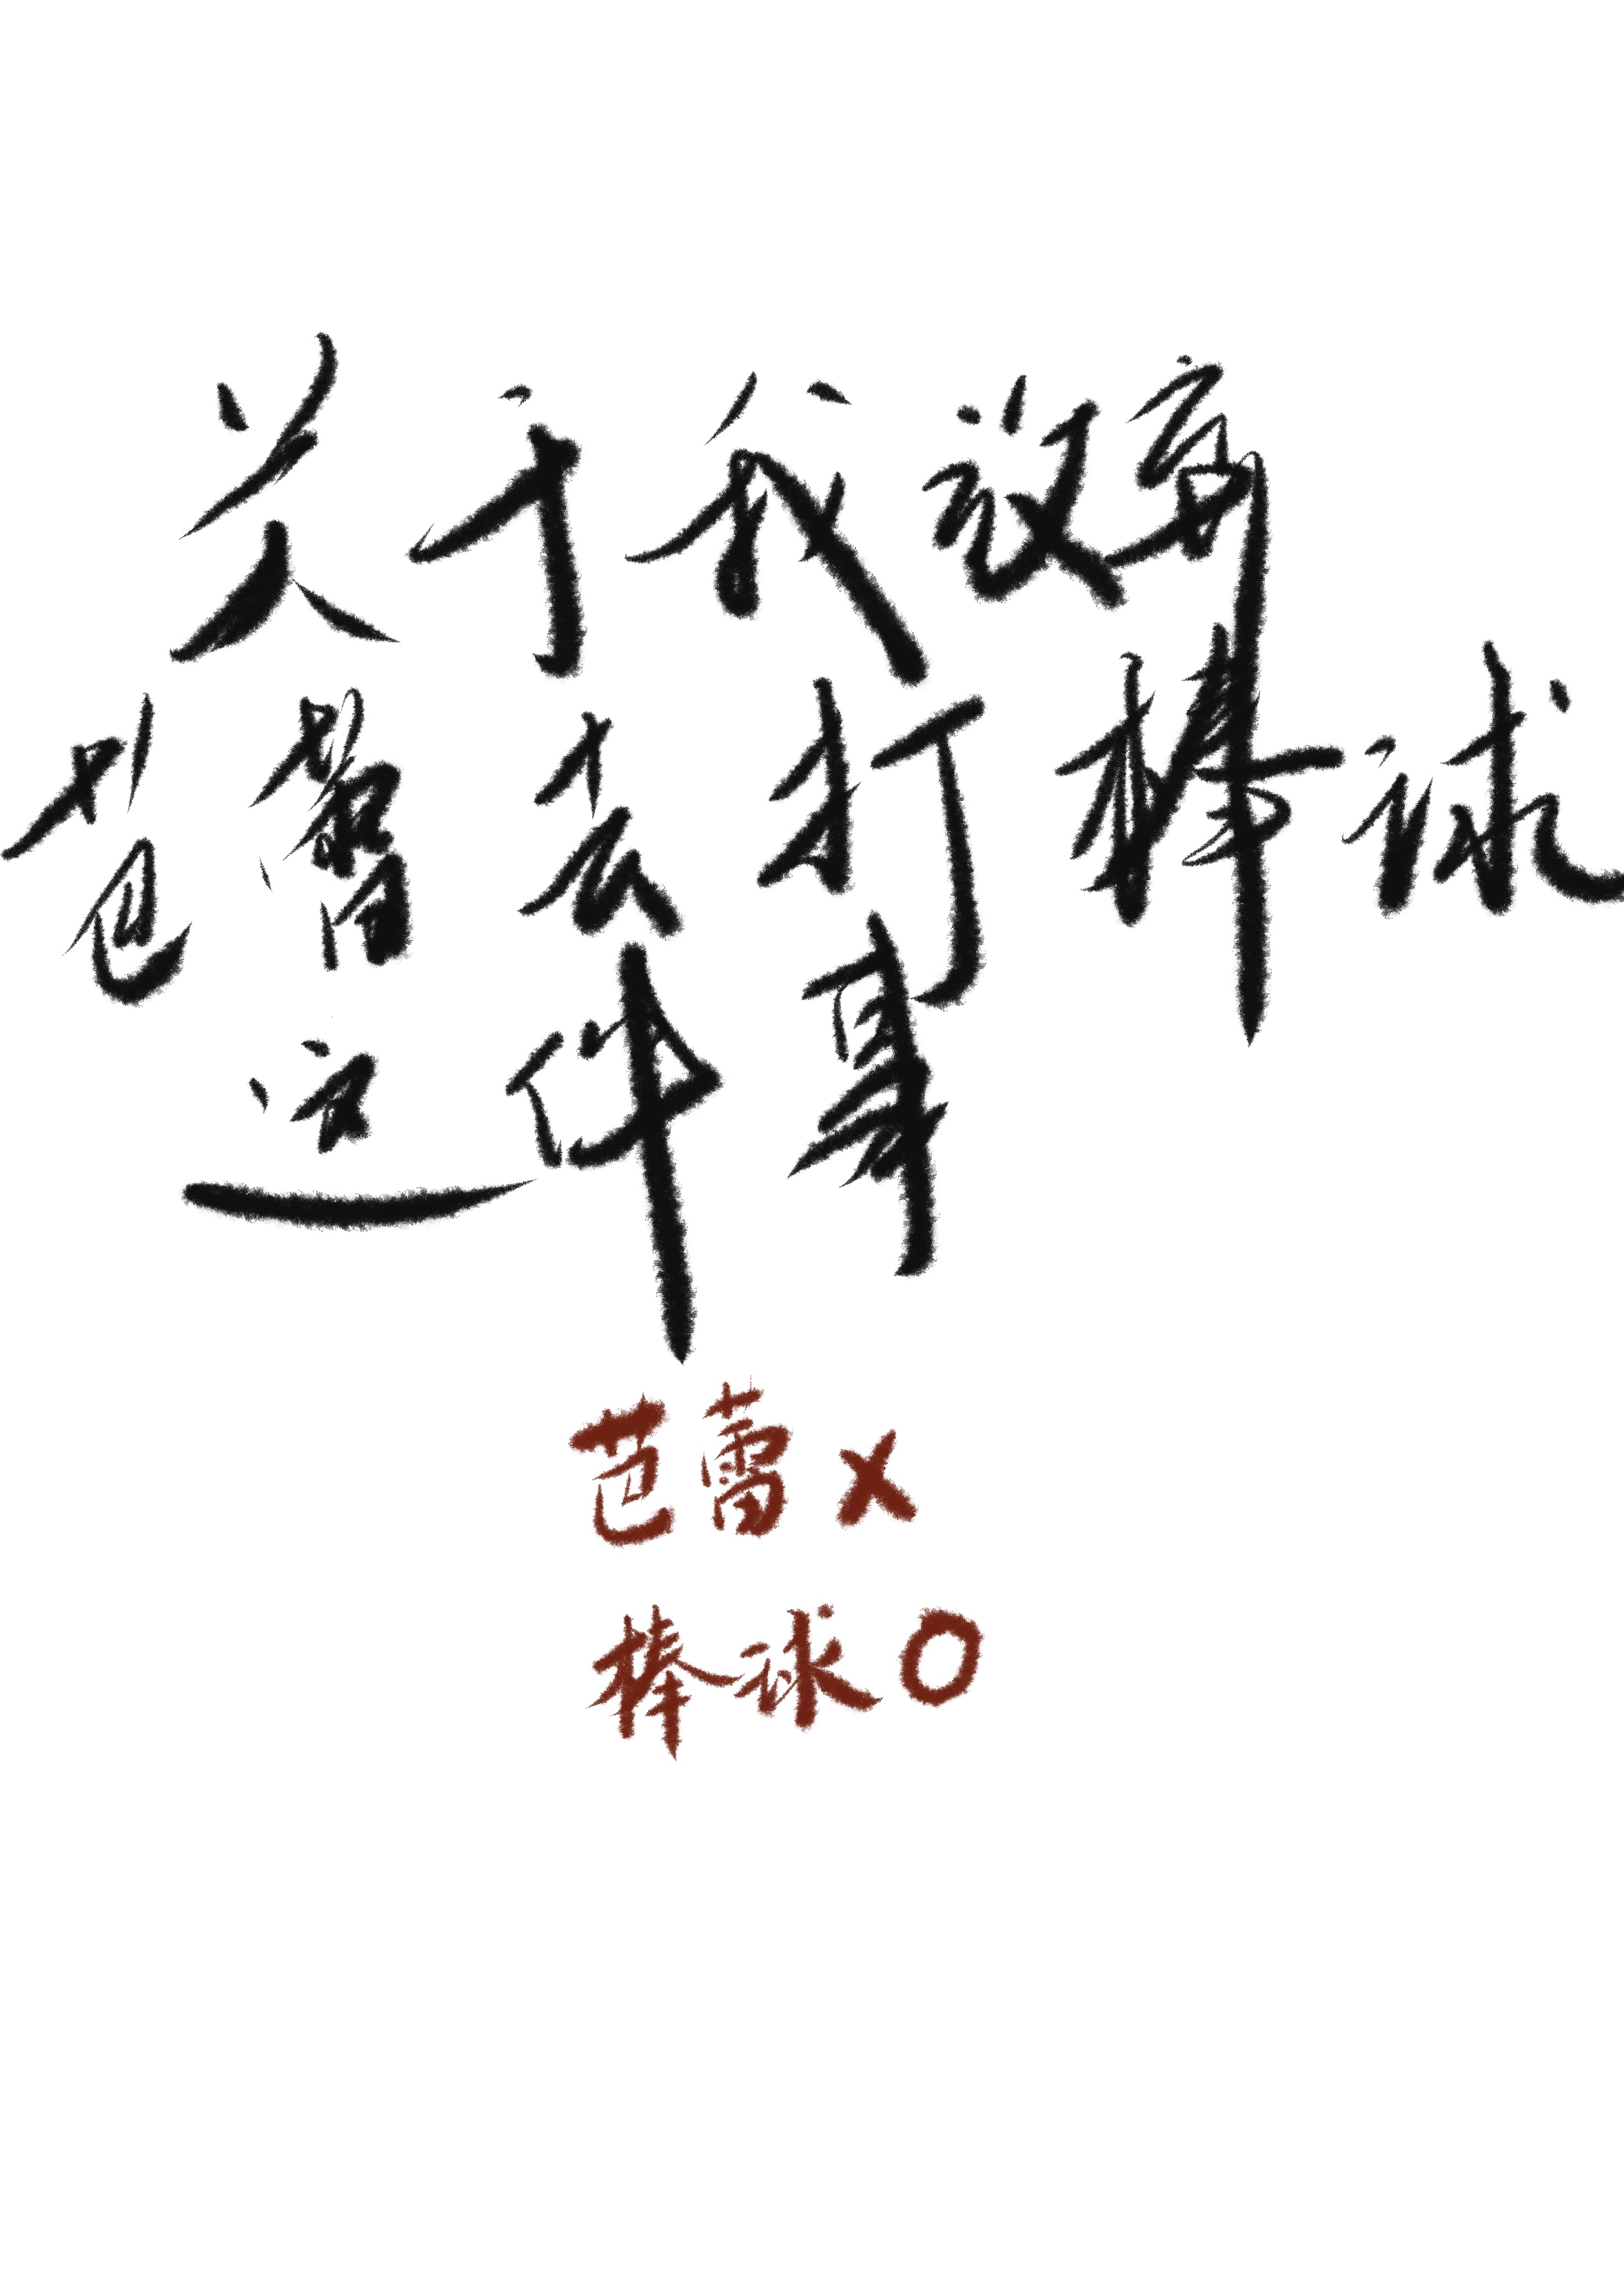 关于我放弃
芭蕾去打棒球
这件事
芭蕾 X
棒球 O